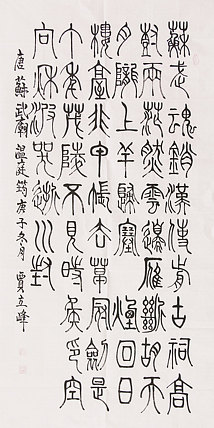 蘇武魂銷漢使前古祠高
樹兩茫然雲邊雁斷胡天
月隴上羊歸塞煙回日
樓臺非甲帳去草冠劍是
丁年茂陵不見時侯印空
向秋波哭逝川封
唐蘇武廟溫庭筠庚子冬月賈立峰